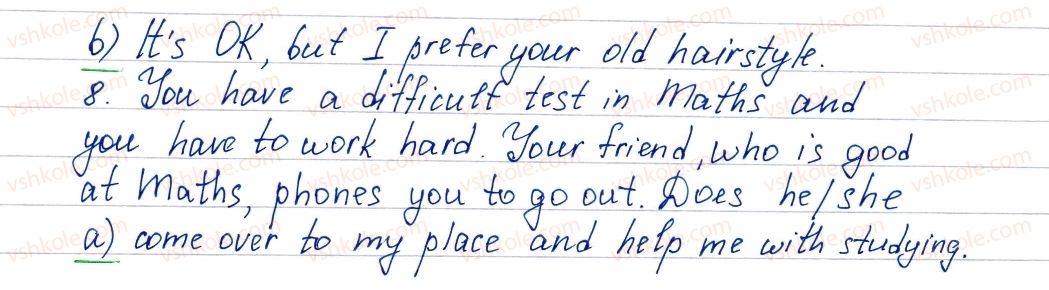 b) It's OK, but I prefer your old hairstyle.
8. You have a difficult test in Maths and
you have to work hard. Your friend, who is good
at Maths, phones you to go out. Does he/she
a) come over to my place and help me with studying.